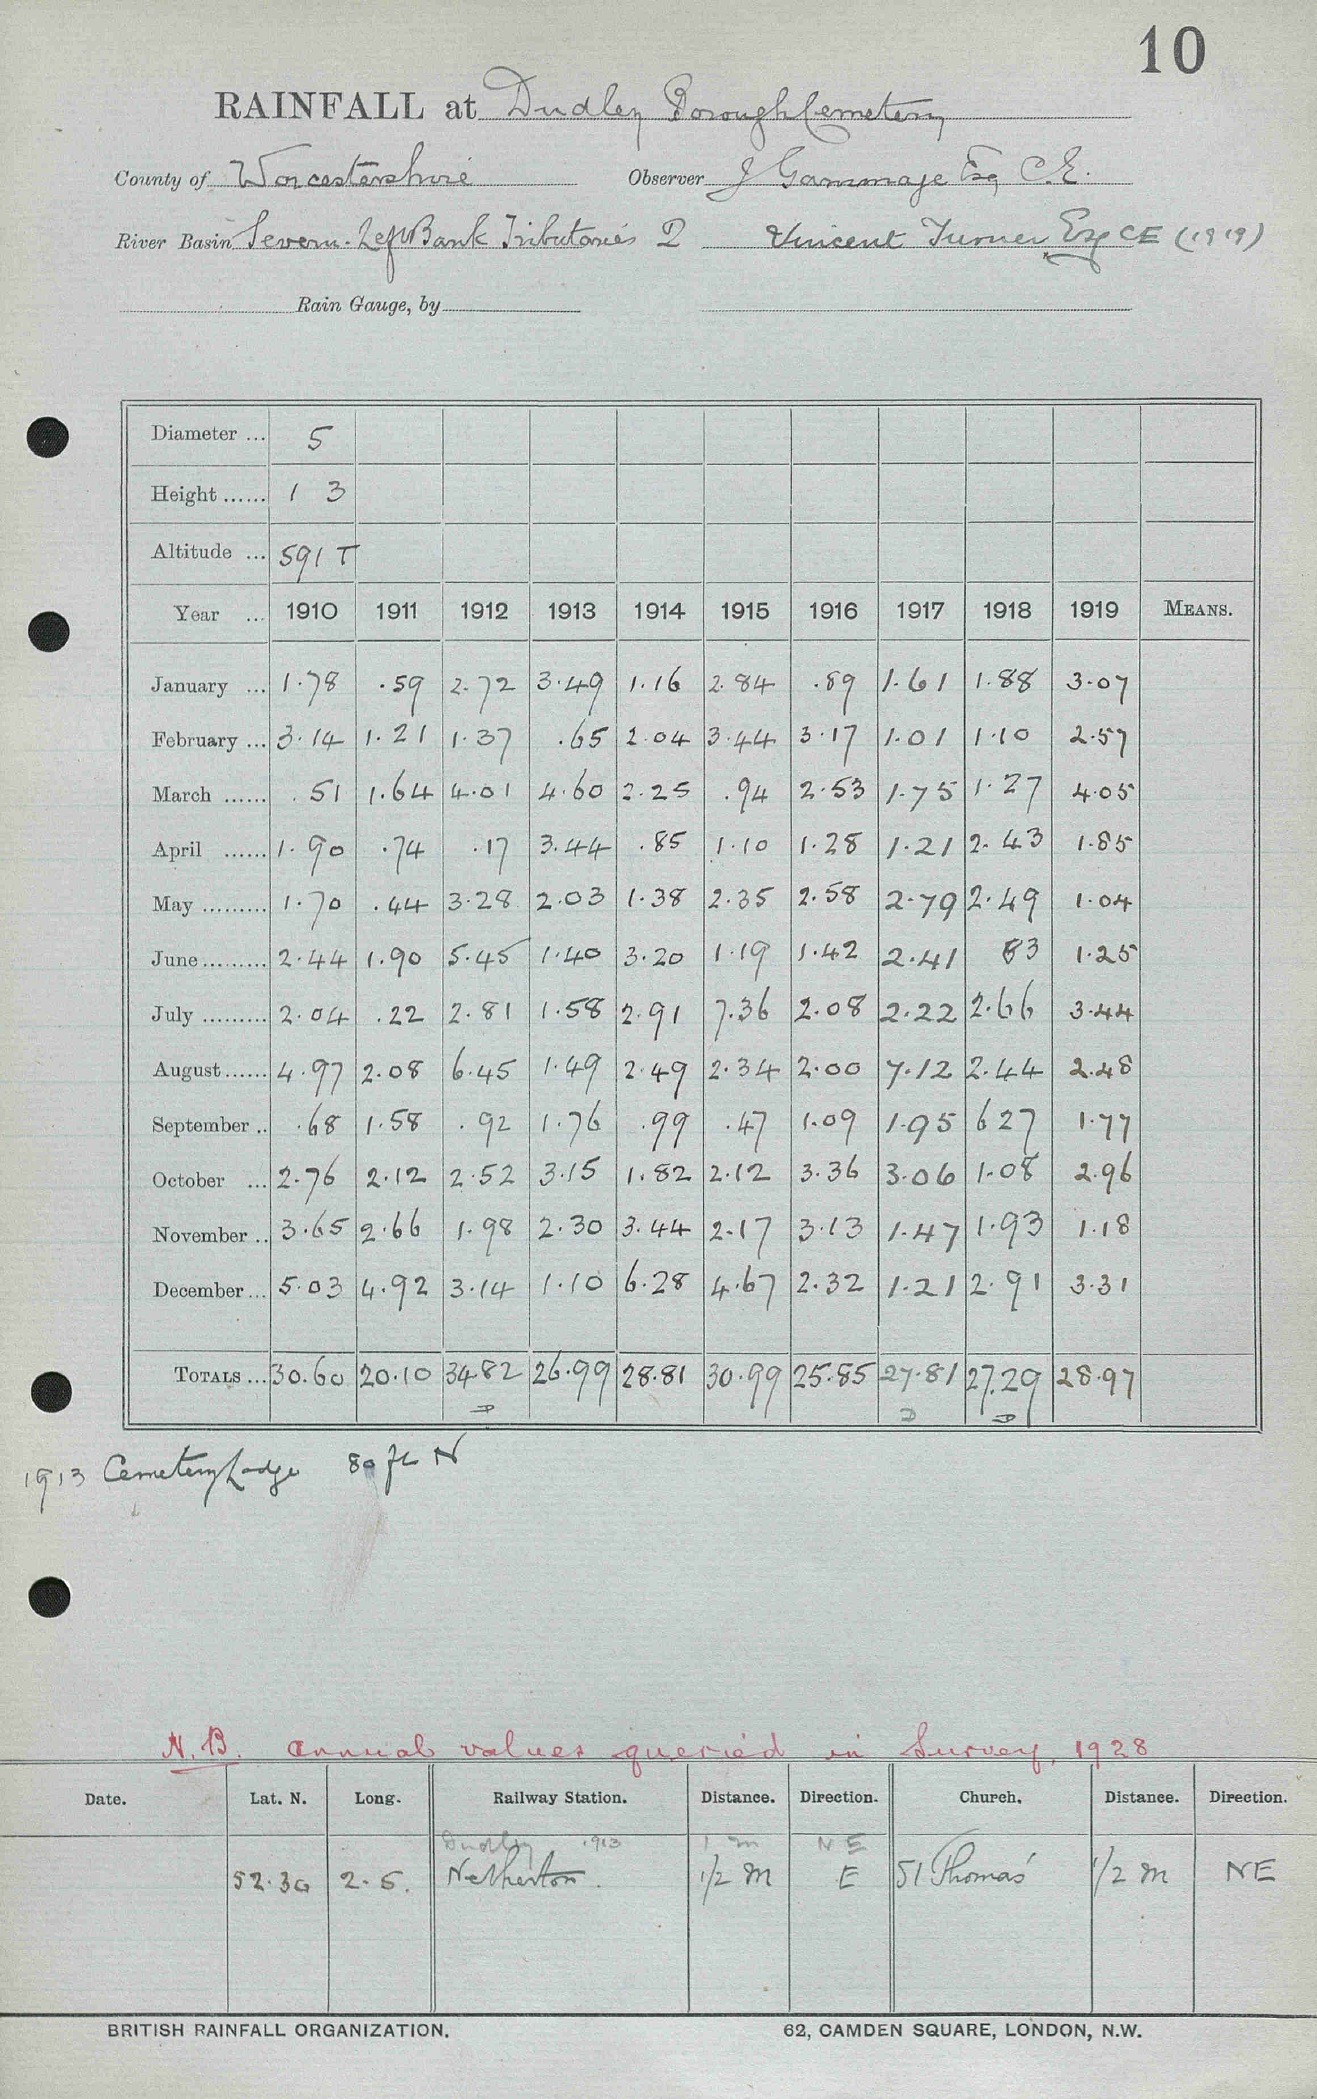 10
RAINFALL at Dudley Borough Cemetery
County of Worcestershire Observer J Gammage Esq C.E.
River Basin Severn. Left Bank Tributaries 2 Vincent Turner Esq CE (1919)
Rain Gauge, by
Diameter ... 5
Height ...... 1 3
Altitude ... 591 T
Year ... 1910 1911 1912 1913 1914 1915 1916 1917 1918 1919 MEANS.
January ... 1.78 .59 2.72 3.49 1.16 2.84 .89 1.61 1.88 3.07
February ... 3.14 1.21 1.37 .65 2.04 3.44 3.17 1.01 1.10 2.57
March ...... .51 1.64 4.01 4.60 2.25 .94 2.53 1.75 1.27 4.05
April ...... 1.90 .74 .17 3.44 .85 1.10 1.28 1.21 2.43 1.85
May ......... 1.70 .44 3.28 2.03 1.38 2.35 2.58 2.79 2.49 1.04
June ......... 2.44 1.90 5.45 1.40 3.20 1.19 1.42 2.41 83 1.25
July ......... 2.04 .22 2.81 1.58 2.91 7.36 2.08 2.22 2.66 3.44
August ...... 4.97 2.08 6.45 1.49 2.49 2.34 2.00 7.12 2.44 2.48
September .. .68 1.58 .92 1.76 .99 .47 1.09 1.95 6 27 1.77
October ... 2.76 2.12 2.52 3.15 1.82 2.12 3.36 3.06 1.08 2.96
November .. 3.65 2.66 1.98 2.30 3.44 2.17 3.13 1.47 1.93 1.18
December ... 5.03 4.92 3.14 1.10 6.28 4.67 2.32 1.21 2.91 3.31
TOTALS ... 30.60 20.10 34.82 26.99 28.81 30.99 25.85 27.81 27.29 28.97
1913 Cemetery Lodge 80 ft N
N.B. Annual values queried in Survey, 1928
Date. Lat. N. Long. Railway Station. Distance. Direction. Church. Distance. Direction.
Dudley 1913 1 m NE
52.30 2.5. Netherton. 1/2 m E St Thomas' 1/2 m NE
BRITISH RAINFALL ORGANIZATION. 62, CAMDEN SQUARE, LONDON, N.W.